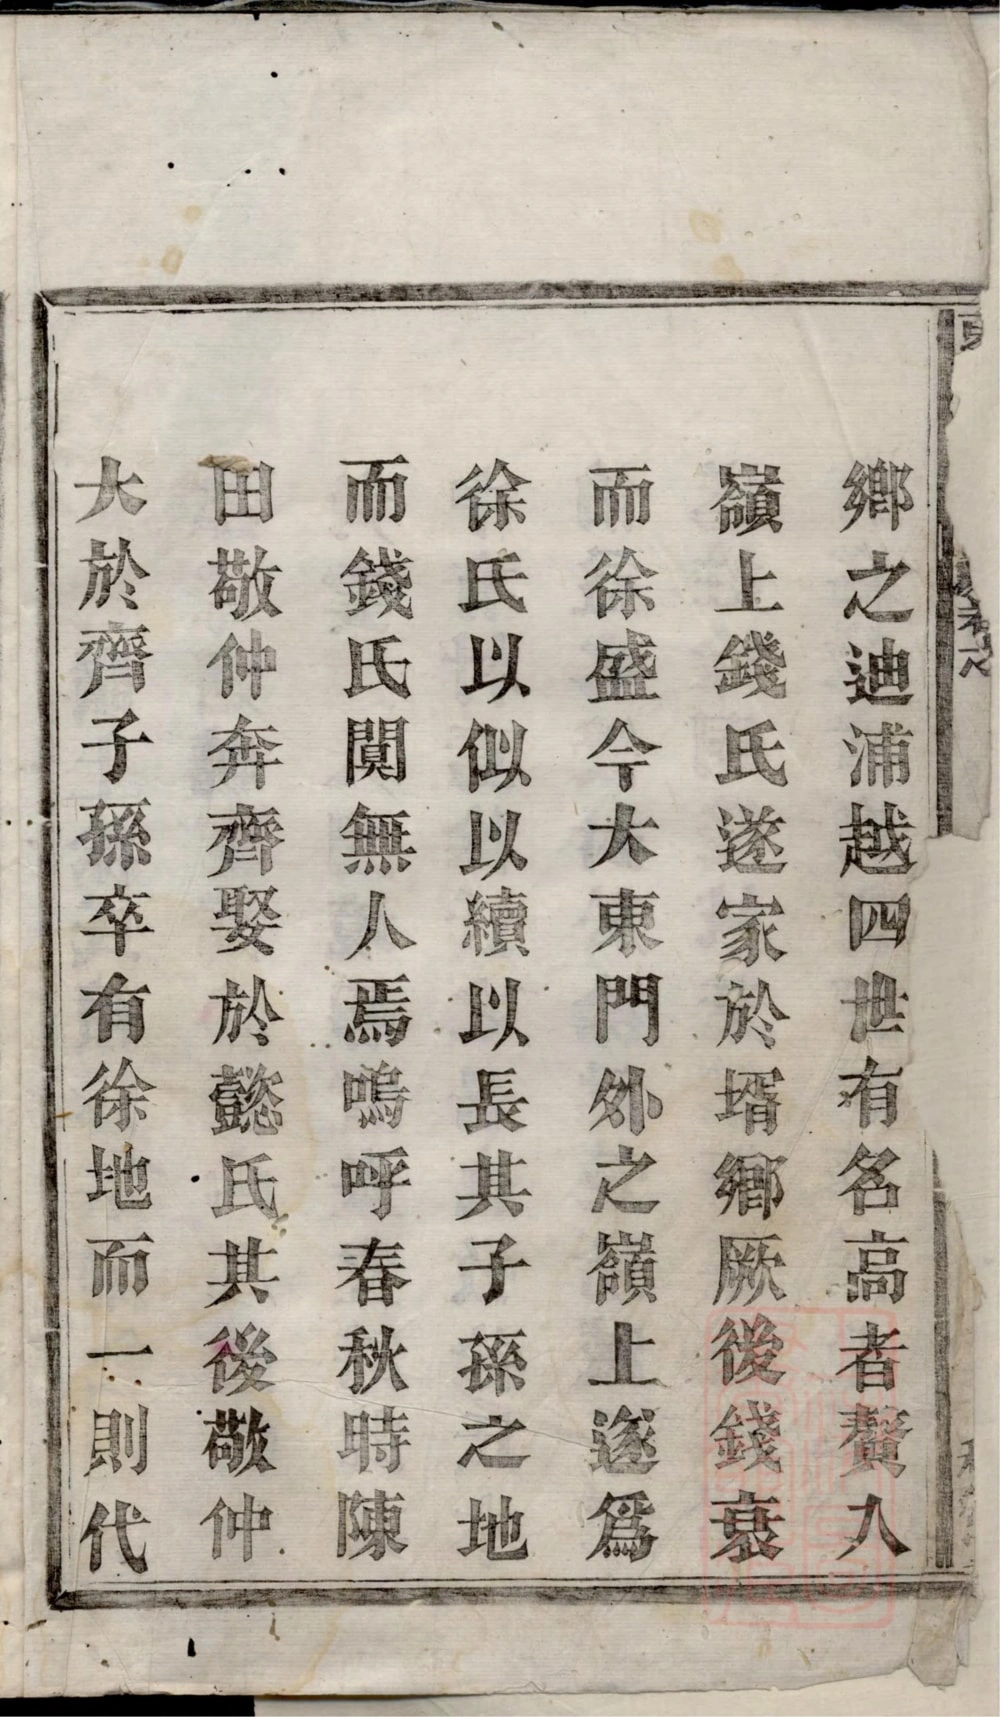 鄉之迪浦越四世有名高者贅入
嶺上錢氏遂家於壻鄉厥後錢衰
而徐盛今大東門外之嶺上遂爲
徐氏以似以續以長其子孫之地
而錢氏闃無人焉嗚呼春秋時陳
田敬仲奔齊娶於懿氏其後敬仲
大於齊子孫卒有徐地而一則代